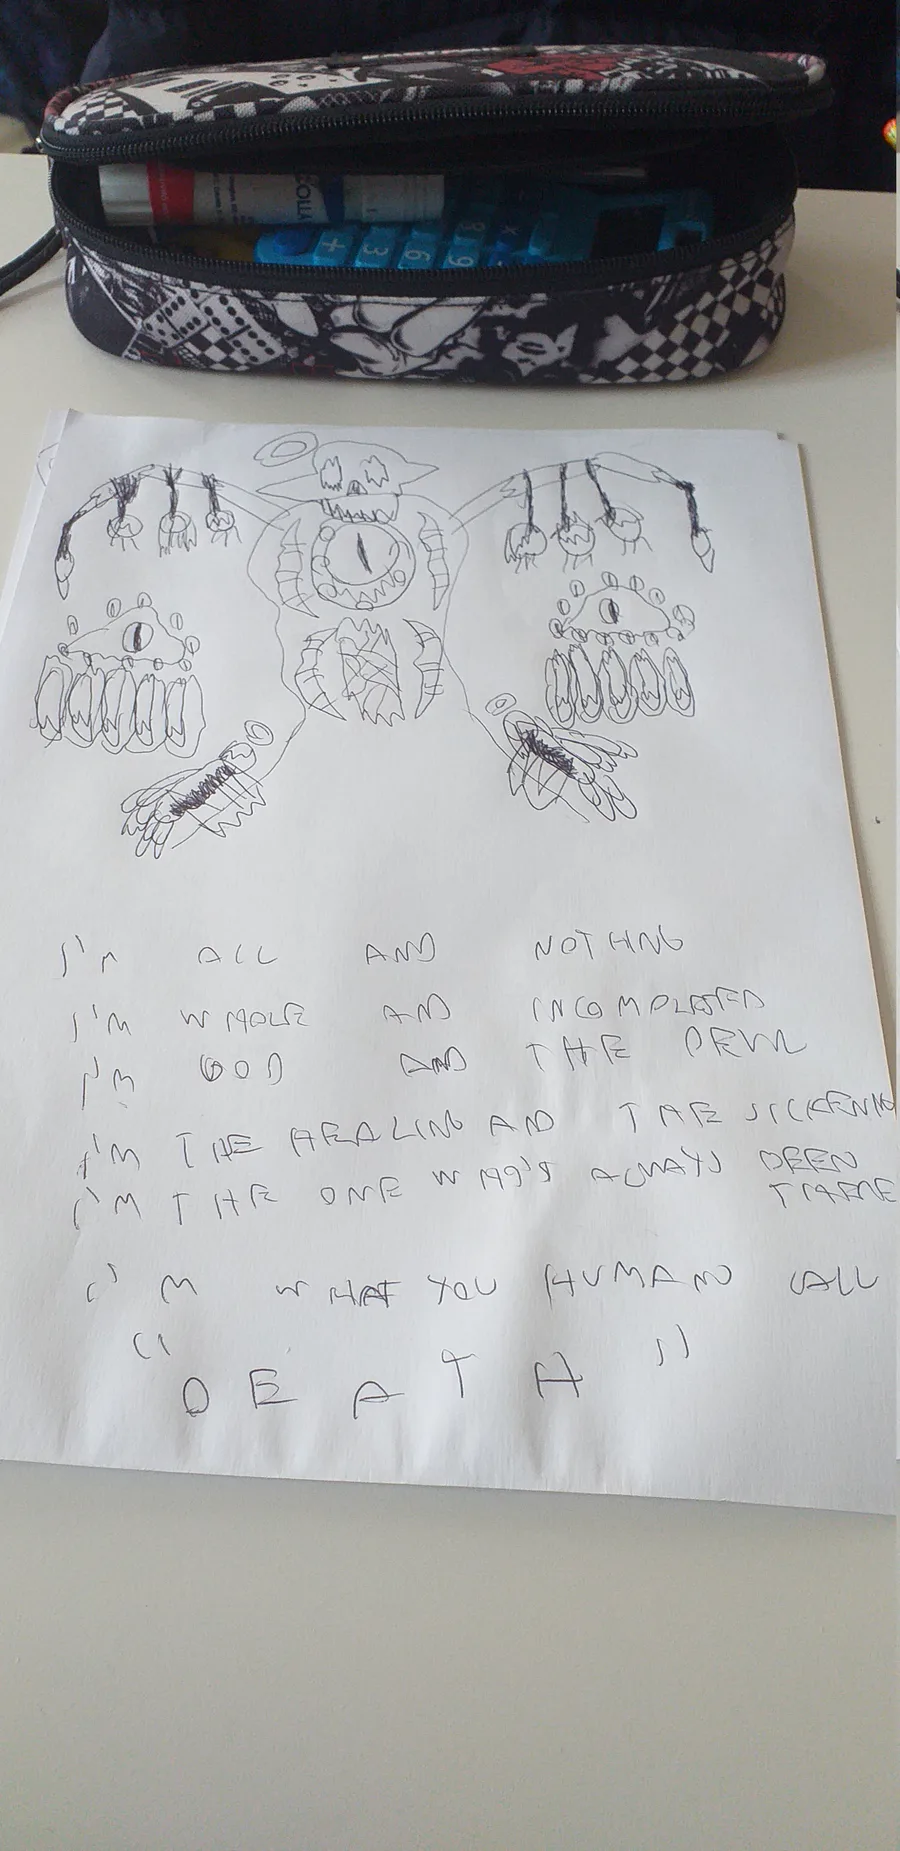 + 3 6 9 x
I'M ALL AND NOTHING
I'M WHOLE AND INCOMPLATED
I'M GOD AND THE DEVIL
I'M THE HEALING AND THE SICKENING
I'M THE ONE WHO'S ALWAYS BEEN
THERE
I'M WHAT YOU HUMAN CALL
"DEATH"